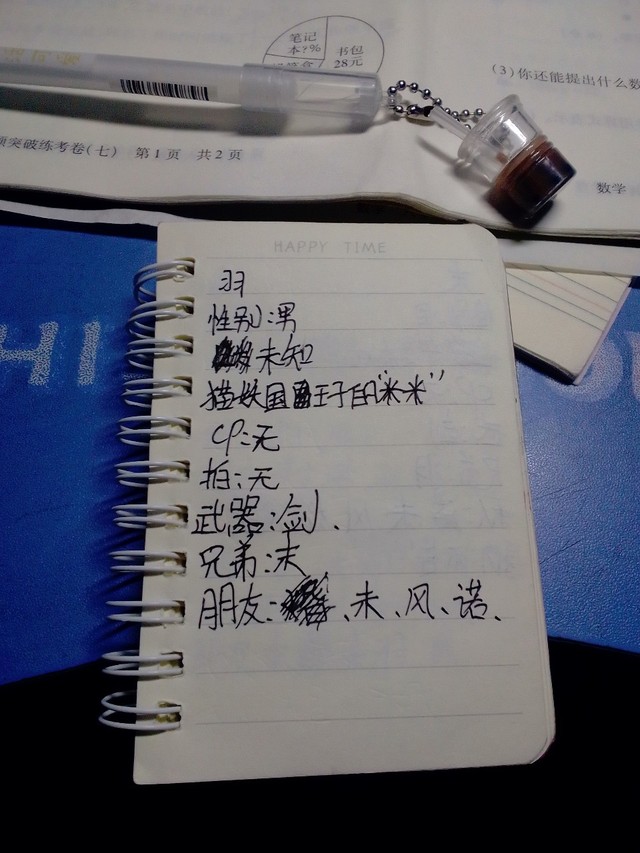 笔记
本?%
书包
28元
(3)你还能提出什么数
突破练考卷(七) 第1页 共2页
数学
HAPPY TIME
羽
性别:男
未知
猫妖国王子的"米米"
CP:无
拍:无
武器:剑、
兄弟:末
朋友:、未、风、诺、